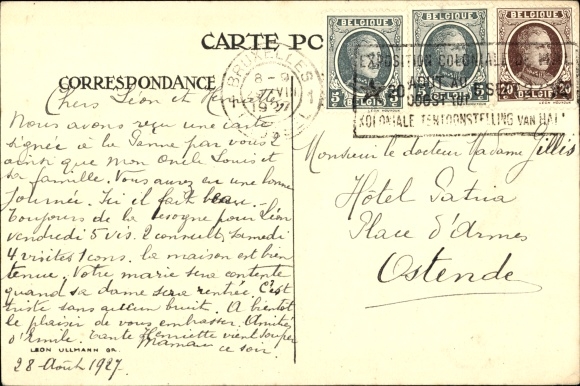 CARTE PO
CORRESPONDANCE
BELGIQUE
BELGIQUE
BELGIQUE
5 BELGIË 5
5 BELGIË 5
20 BELGIË 20
BRUXELLES
8-9
VIII
1927
1
EXPOSITION COLONIALE DE HAL
AOUT AU
OOGST TOT
20
KOLONIALE TENTOONSTELLING VAN HAL
Chers Léon et
Nous avons reçu une carte
signée à la Panne par vous 2
ainsi que mon Oncle Louis et
sa famille. Vous aurez eu une bonne
journée. Ici il fait beau.
Toujours de la besogne pour Léon
vendredi 5 vis. 2 consult, samedi
4 visites 1 cons. la maison est bien
tenue. Votre marie sera contente
quand sa dame sera rentrée. C'est
triste sans aucun bruit. A bientôt
le plaisir de vous embrasser. Amitiés
d'Emile. tante Henriette vient souper
maman ce soir.
LEON ULLMANN GR.
28 Août 1927.
Monsieur le docteur Madame Jillis
Hôtel Patria
Place d'Armes
Ostende